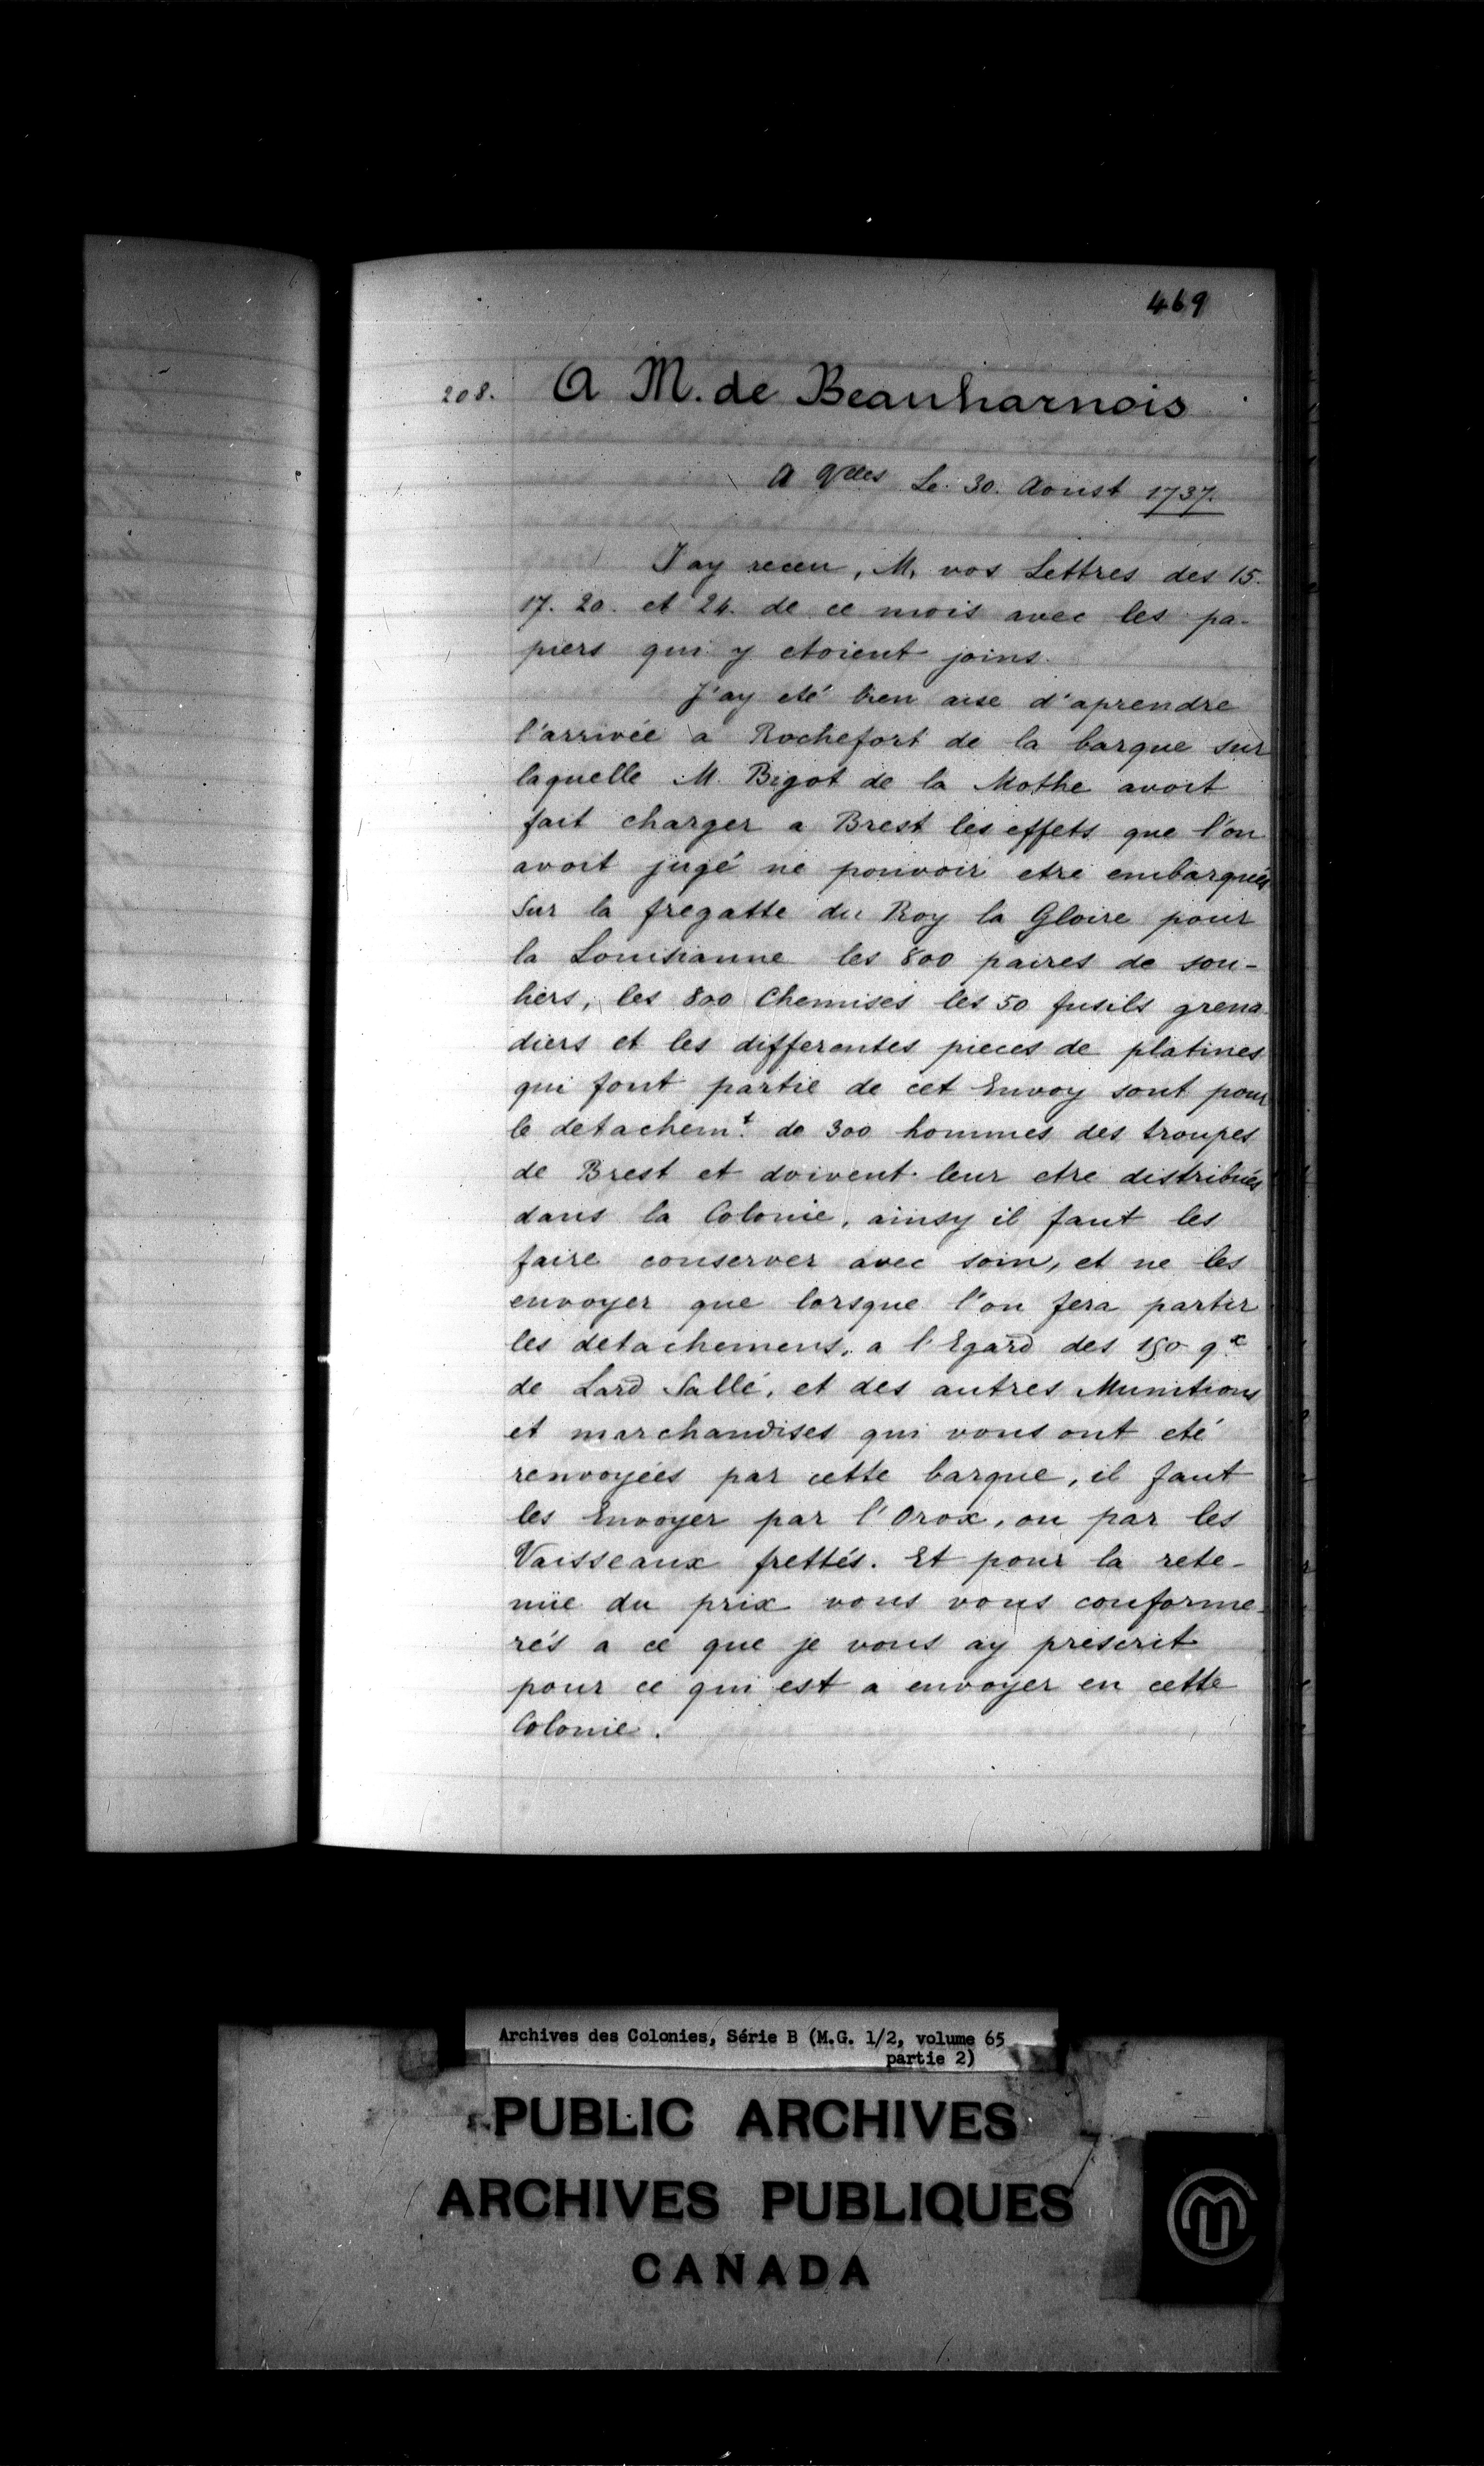 469
208. A M. de Beauharnois
A Vlles Le 30. Aoust 1737.
J'ay receu, M, vos Lettres des 15.
17. 20. et 24. de ce mois avec les pa-
piers qui y etoient joins.
J'ay eté bien aise d'aprendre
l'arrivée a Rochefort de la barque sur
laquelle M. Bigot de la Mothe avoit
fait charger a Brest les effets que l'on
avoit jugé ne pouvoir etre embarqués
Sur la fregatte du Roy la Gloire pour
la Louisianne les 800 paires de sou-
liers, les 800 Chemises les 50 fusils grena
diers et les differentes pieces de platines
qui font partie de cet Envoy sont pour
le detachem.t de 300 hommes des troupes
de Brest et doivent leur etre distribués
dans la Colonie, ainsy il faut les
faire conserver avec soin, et ne les
envoyer que lorsque l'on fera partir
les detachemens, a l'Egard des 150 qx
de Lard Sallé, et des autres Munitions
et marchandises qui vous ont eté
renvoyées par cette barque, il faut
les Envoyer par l'Orox, ou par les
Vaisseaux frettés. Et pour la rete-
nüe du prix vous vous conforme-
rés a ce que je vous ay prescrit
pour ce qui est a envoyer en cette
Colonie.
Archives des Colonies, Série B (M.G. 1/2, volume 65
partie 2)
PUBLIC ARCHIVES
ARCHIVES PUBLIQUES
CANADA